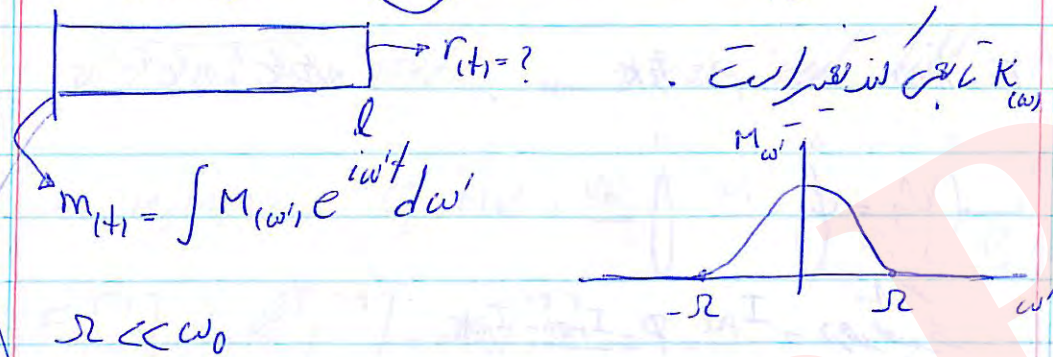 r(t) = ?
K(ω) تابعی کند تغییر است .
l
m(t) = ∫ M(ω') e^{iω't} dω'
M_ω'
-Ω Ω ω'
Ω << ω₀